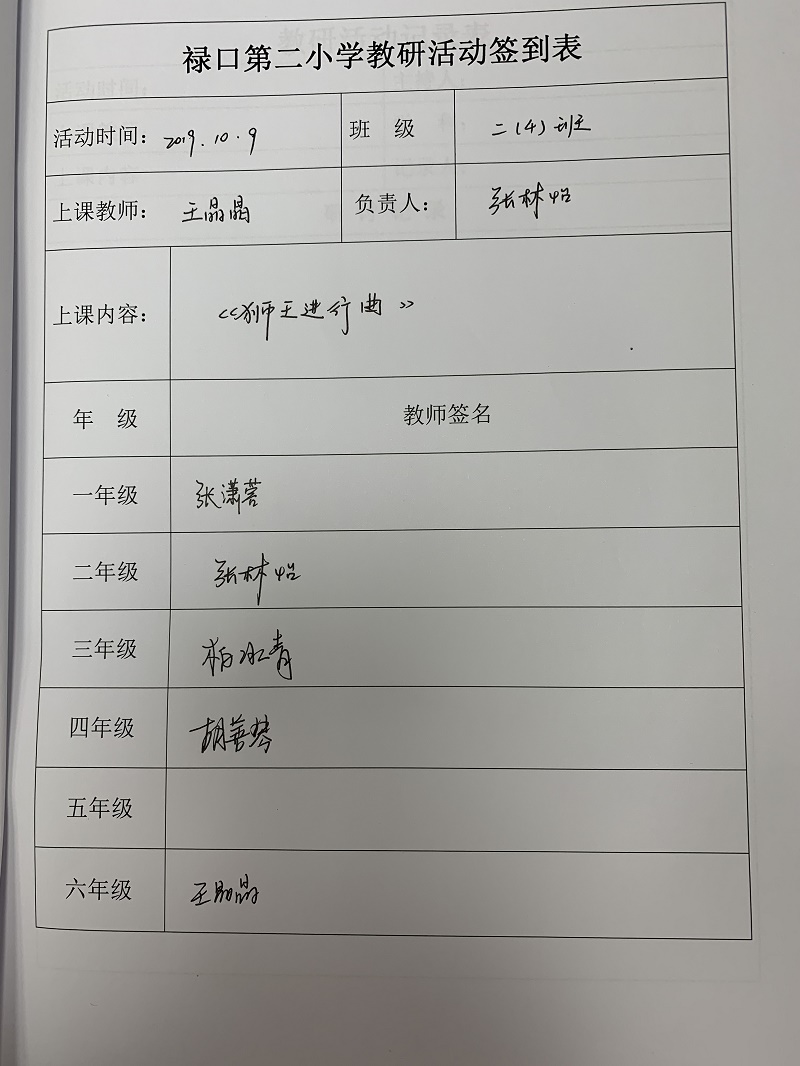 禄口第二小学教研活动签到表
活动时间: 2019.10.9 班 级 二(4)班
上课教师: 王晶晶 负责人: 张林怡
上课内容: 《狮王进行曲》
年 级 教师签名
一年级 张潇
二年级 张林怡
三年级 柏冰青
四年级 胡善琴
五年级
六年级 王晶晶